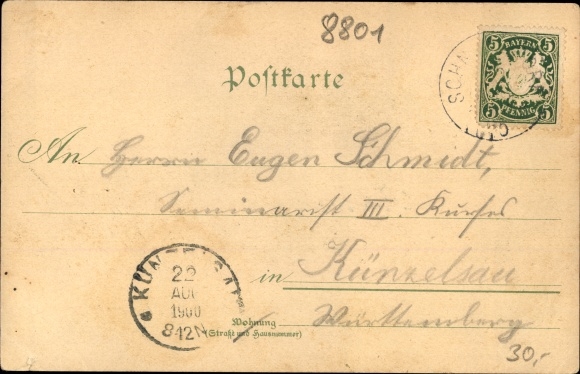 8801
5 BAYERN 5
5 PFENNIG 5
SCHN
Postkarte
An Herrn Eugen Schmidt,
Seminarist III. Kurses
in Künzelsau
Württemberg
Wohnung
(Straße und Hausnummer)
KÜNZELSAU
22
AUG
1900
8-12N
30,-